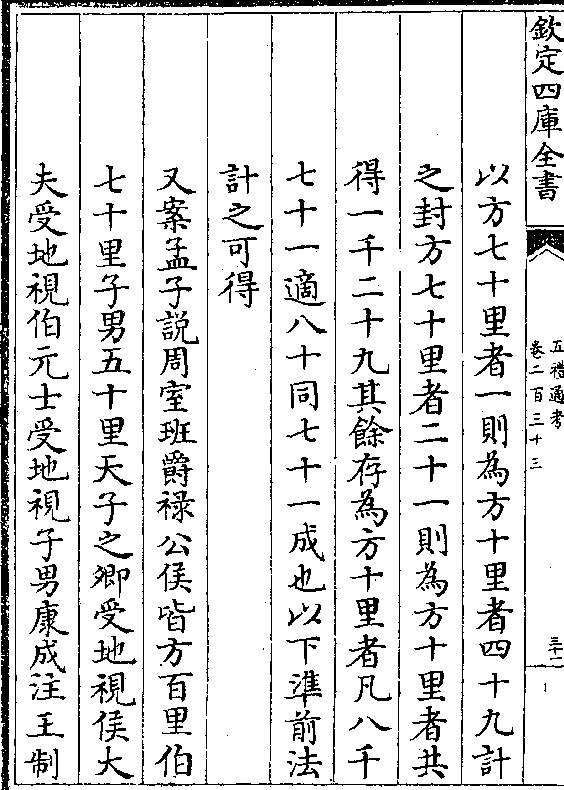 欽定四庫全書
五禮通考
卷二百三十三
三十一
以方七十里者一則為方十里者四十九計
之封方七十里者二十一則為方十里者共
得一千二十九其餘存為方十里者凡八千
七十一適八十同七十一成也以下準前法
計之可得
又案孟子説周室班爵禄公侯皆方百里伯
七十里子男五十里天子之卿受地視侯大
夫受地視伯元士受地視子男康成注王制